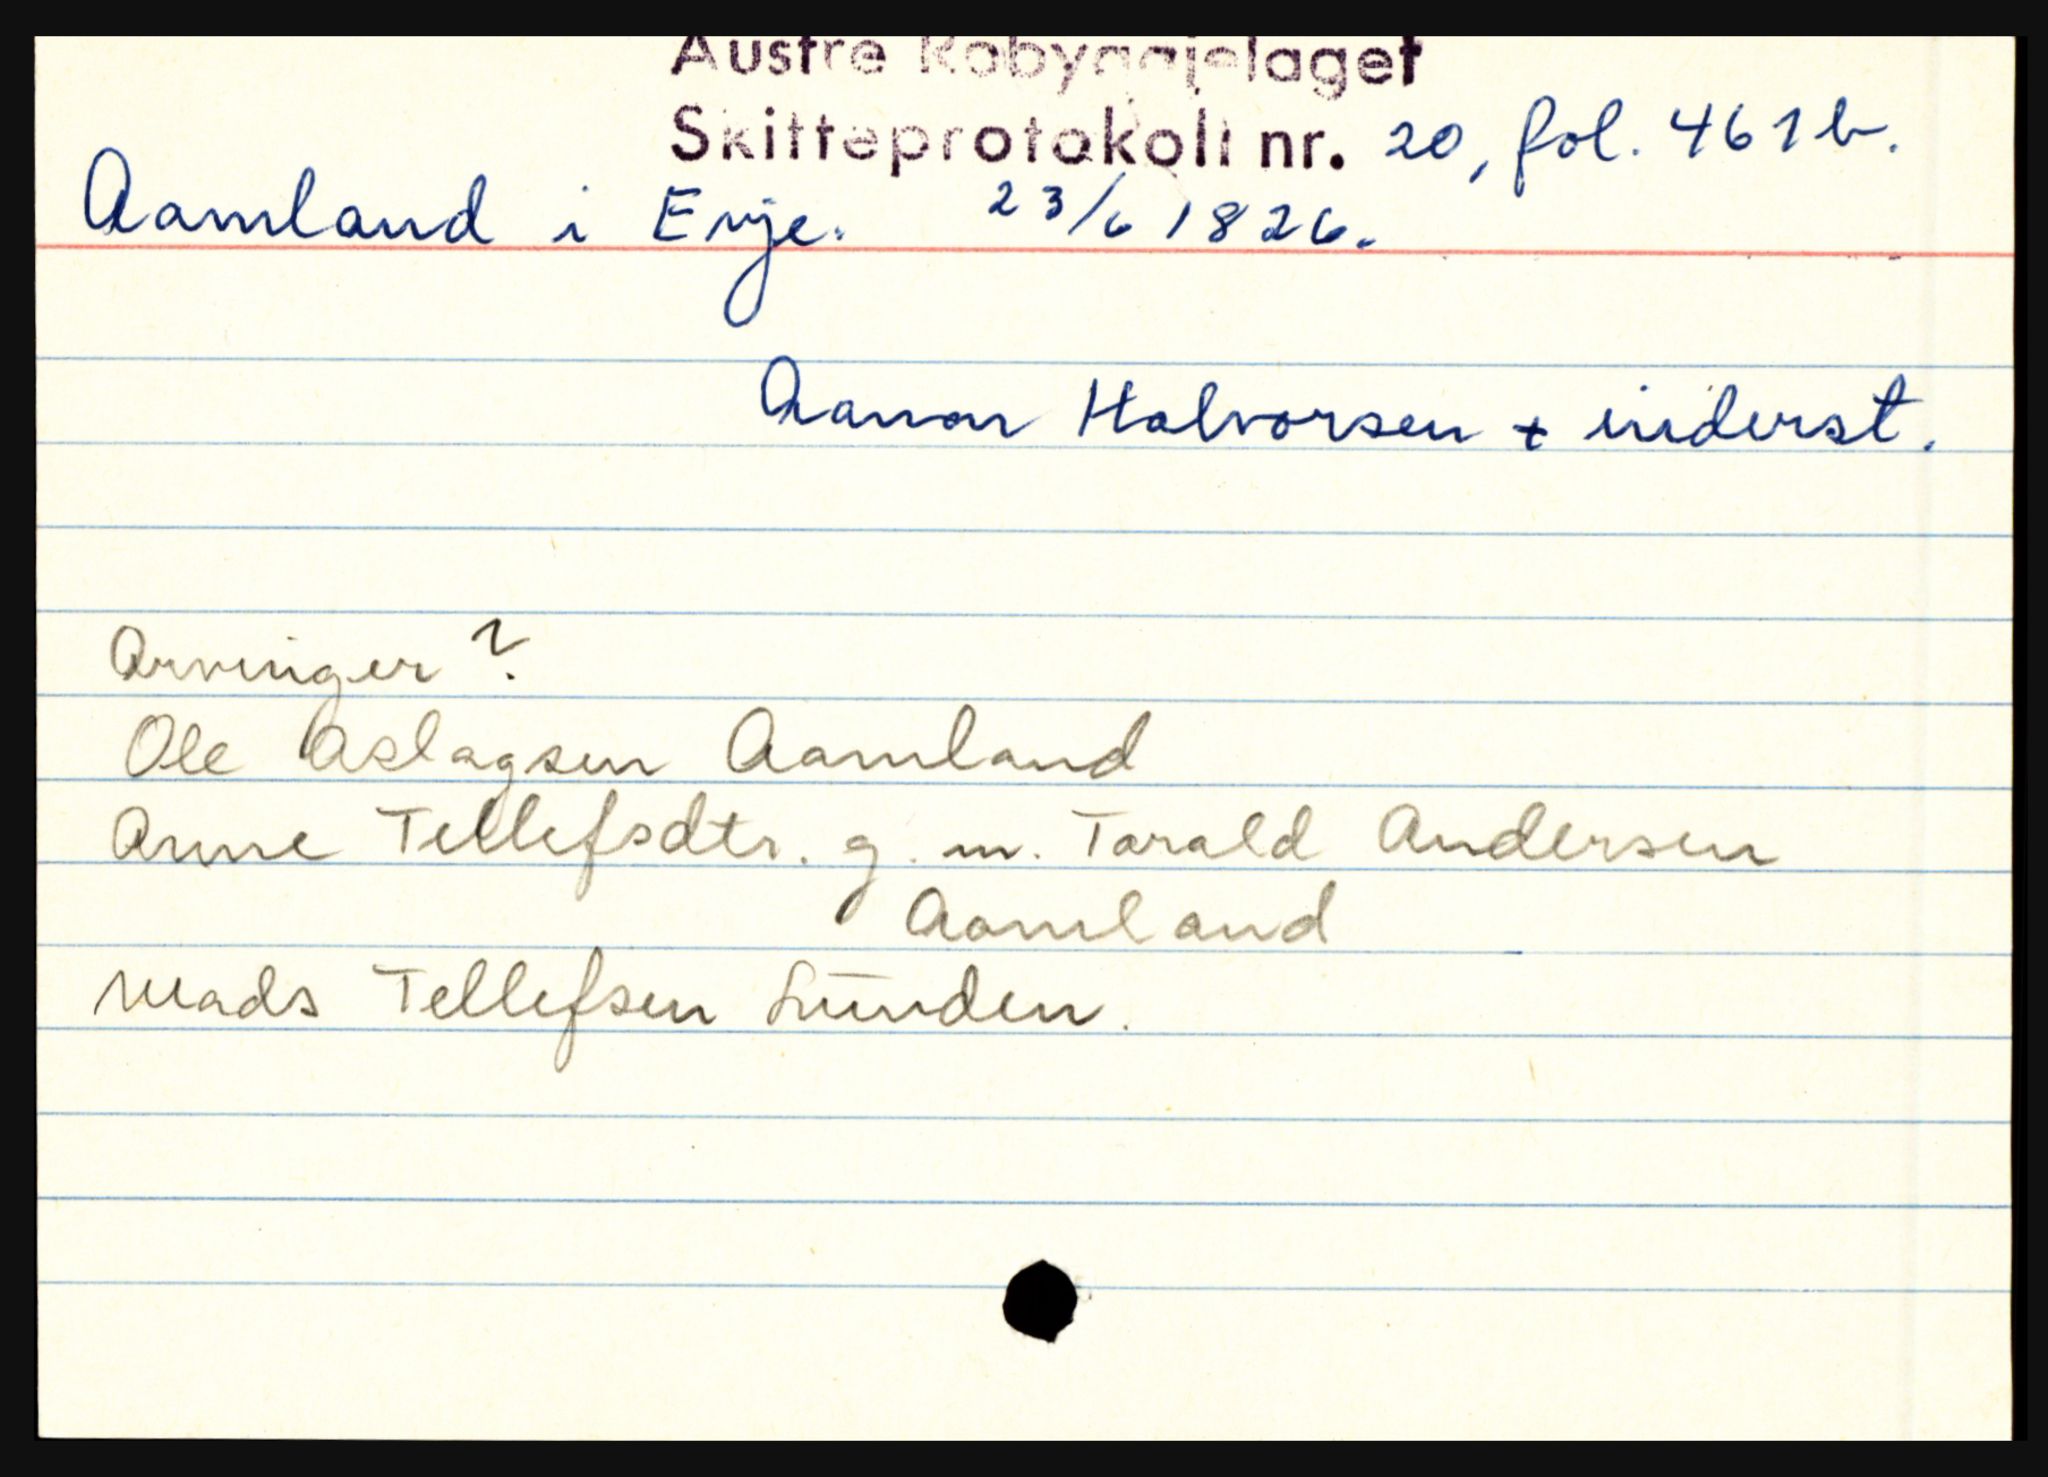 Austre Robyggjelaget
Skifteprotokoll nr. 20, fol. 461b.
Aamland i Evje. 23/6 1826.
Aanon Halvorsen + inderst.
Arvinger?
Ole Aslagsen Aamland
Anne Tellefsdtr. g. m. Tarald Andersen
Aamland
Mads Tellefsen Lunden.